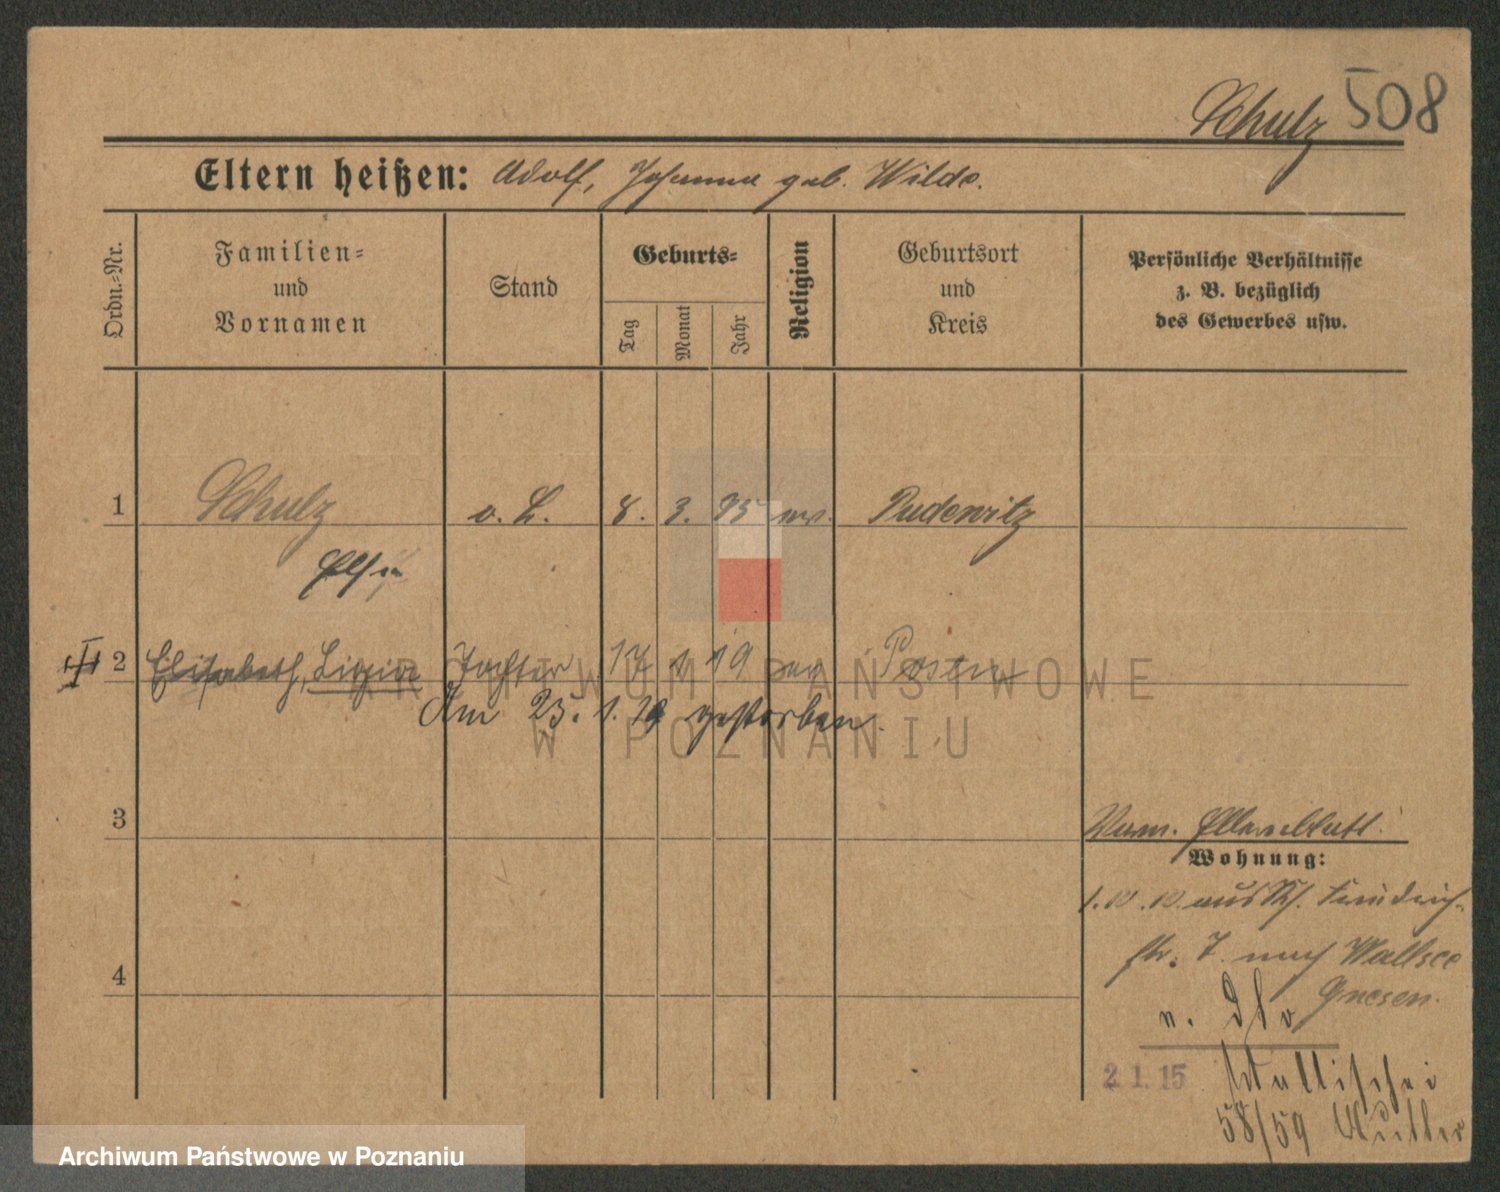 Schulz 508
Eltern heißen: Adolf, Johanna geb. Wilde.
Ordn.-Nr.
Familien-
und
Vornamen
Stand
Geburts-
Tag
Monat
Jahr
Religion
Geburtsort
und
Kreis
Persönliche Verhältnisse
z. B. bezüglich
des Gewerbes usw.
1 Schulz o. B. 8. 3. 95 ev. Pudewitz
2 Elisabeth, Tochter 17 1 19 ev Posen
Am 25. 1. 19 gestorben.
3
Wohnung:
4
str. 7. nach Wallsee
Gnesen.
2. 1. 15 Wallischei
58/59 Mutter
ARCHIWUM PAŃSTWOWE
W POZNANIU
Archiwum Państwowe w Poznaniu